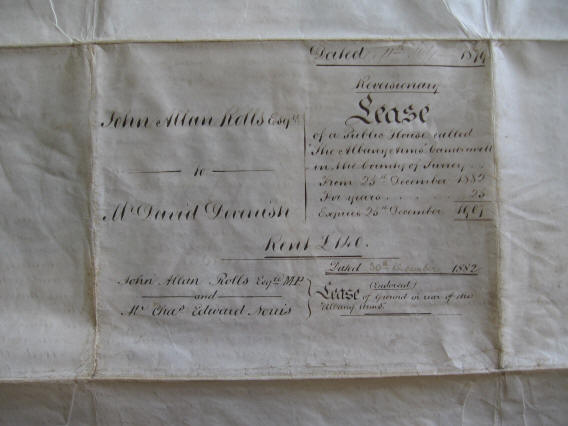 Dated 1879
Reversionary
Lease
John Allan Rolls Esqre
to
Mr David Devenish
of a Public House called
"The Albany Arms" Camberwell
in the County of Surrey
From 25th December 1882
For years 25
Expires 25th December 1907
Rent £140.
Dated 30th December 1882
John Allan Rolls Esqre M.P
and
Mr Chas Edward Norris
(Endorsed)
Lease of Ground in rear of the
Albany Arms.